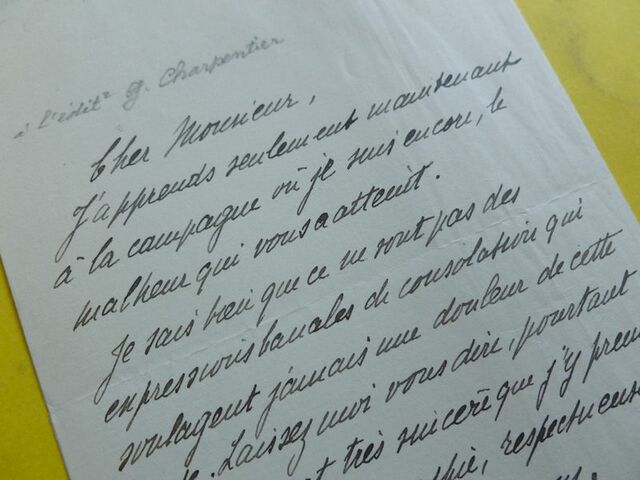 à l'édit^r G. Charpentier
Cher Monsieur,
J'apprends seulement maintenant
à la campagne où je suis encore, le
malheur qui vous a atteint.
Je sais bien que ce ne sont pas des
expressions banales de consolation qui
soulagent jamais une douleur de cette
Laissez moi vous dire, pourtant
très sincère que j'y pren
respectueuse